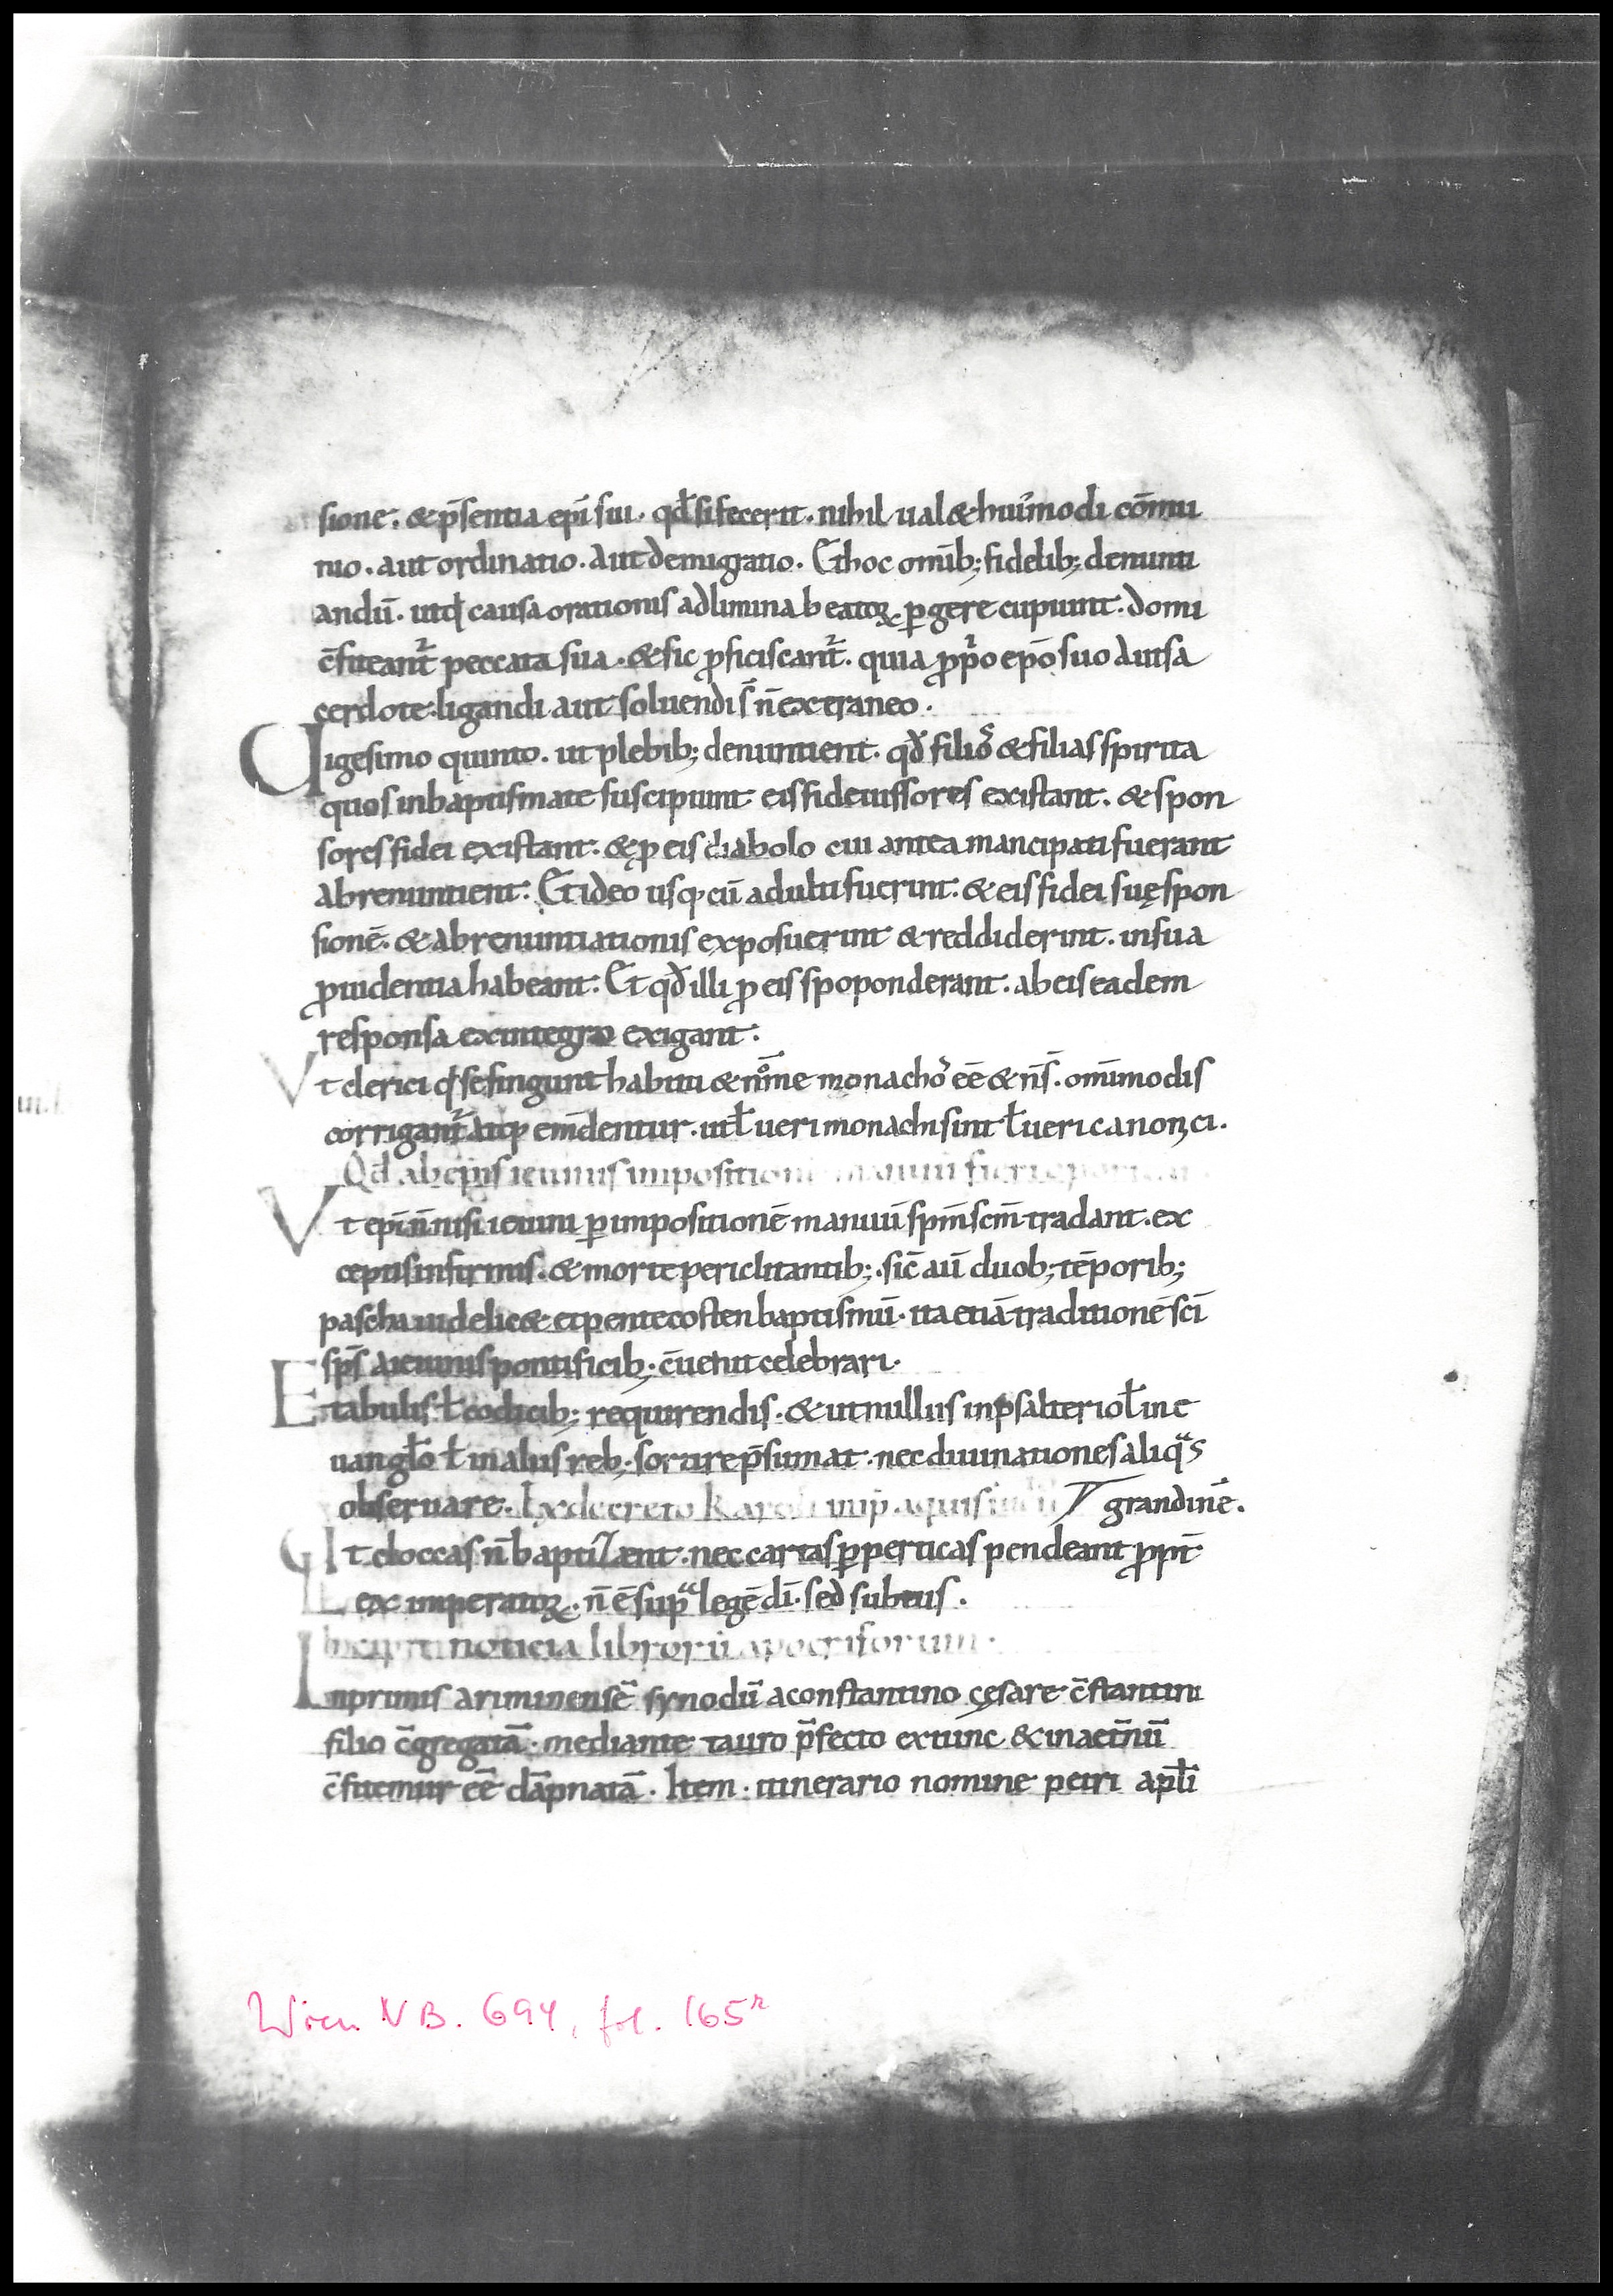 sione. & p̄sentia ep̄i sui. qd̄ si fecerit. nihil ual& hui'modi cōmu
nio. aut ordinatio. aut demigratio. Et hoc omīb; fidelib; denunti
andū. ut q̄ causa orationis ad limina beatoꝝ ꝑgere cupiunt. domi
c̄fiteant̄ peccata sua. & sic ꝓficiscant̄. quia ꝓp̄o ep̄o suo aut sa
cerdote. ligandi aut soluendi s̄ n̄ extraneo.
Uigesimo quinto. ut plebib; denuntient. qd̄ filios & filias spirita
quos in baptismate suscipiunt eis fideiussores existant. & spon
sores fidei existant. & ꝓ eis diabolo cui antea mancipati fuerant
abrenuntient. Et ideo usq; cū adulti fuerint. & eis fidei suę spon
sionē. & abrenuntiationis exposuerint & reddiderint. in sua
ꝓuidentia habeant. Et qd̄ illi ꝓ eis spoponderant. ab eis eadem
responsa ex integro exigant.
Vt clerici q̄ se fingunt habitu & nōme monachos eē & n̄ s̄. omīmodis
corrigant̄ atq; emēdentur. ut ł ueri monachi sint ł ueri canonici.
Qd ab ep̄is ieiunis impositio manuū fieri
Vt ep̄i n̄ nisi ieiuni ꝑ impositionē manuū sp̄m sc̄m tradant. ex
ceptis infirmis. & morte periclitantib;. sic̄ aū duob; tēporib;
pascha uidelic& et pentecosten baptismū. ita etiā traditionē sc̄i
sp̄s a ieiunis pontificib; c̄uenit celebrari.
E tabulis ł codicib; requirendis. & ut nullus in psalterio ł in e
uangl̄o ł in aliis reb; sortire p̄sumat. nec diuinationes aliqas
obseruare. Ex decreto Karoli imp̄. aquis grandinē.
Ut cloccas n̄ baptizent. nec cartas ꝑ perticas pendeant ꝓpt̄
Lex imperatoꝝ. n̄ ē sup̄a legē di. sed subtus.
Incipit noticia librorū apocriforum.
Inprimis ariminensē synodū a constantino cęsare c̄stantini
filio c̄gregatā. mediante tauro p̄fecto extunc & in aet̄nū
c̄fitemur eē dāpnatā. Item. itinerario nomine petri apl̄i
Wien NB. 694, fol. 165r